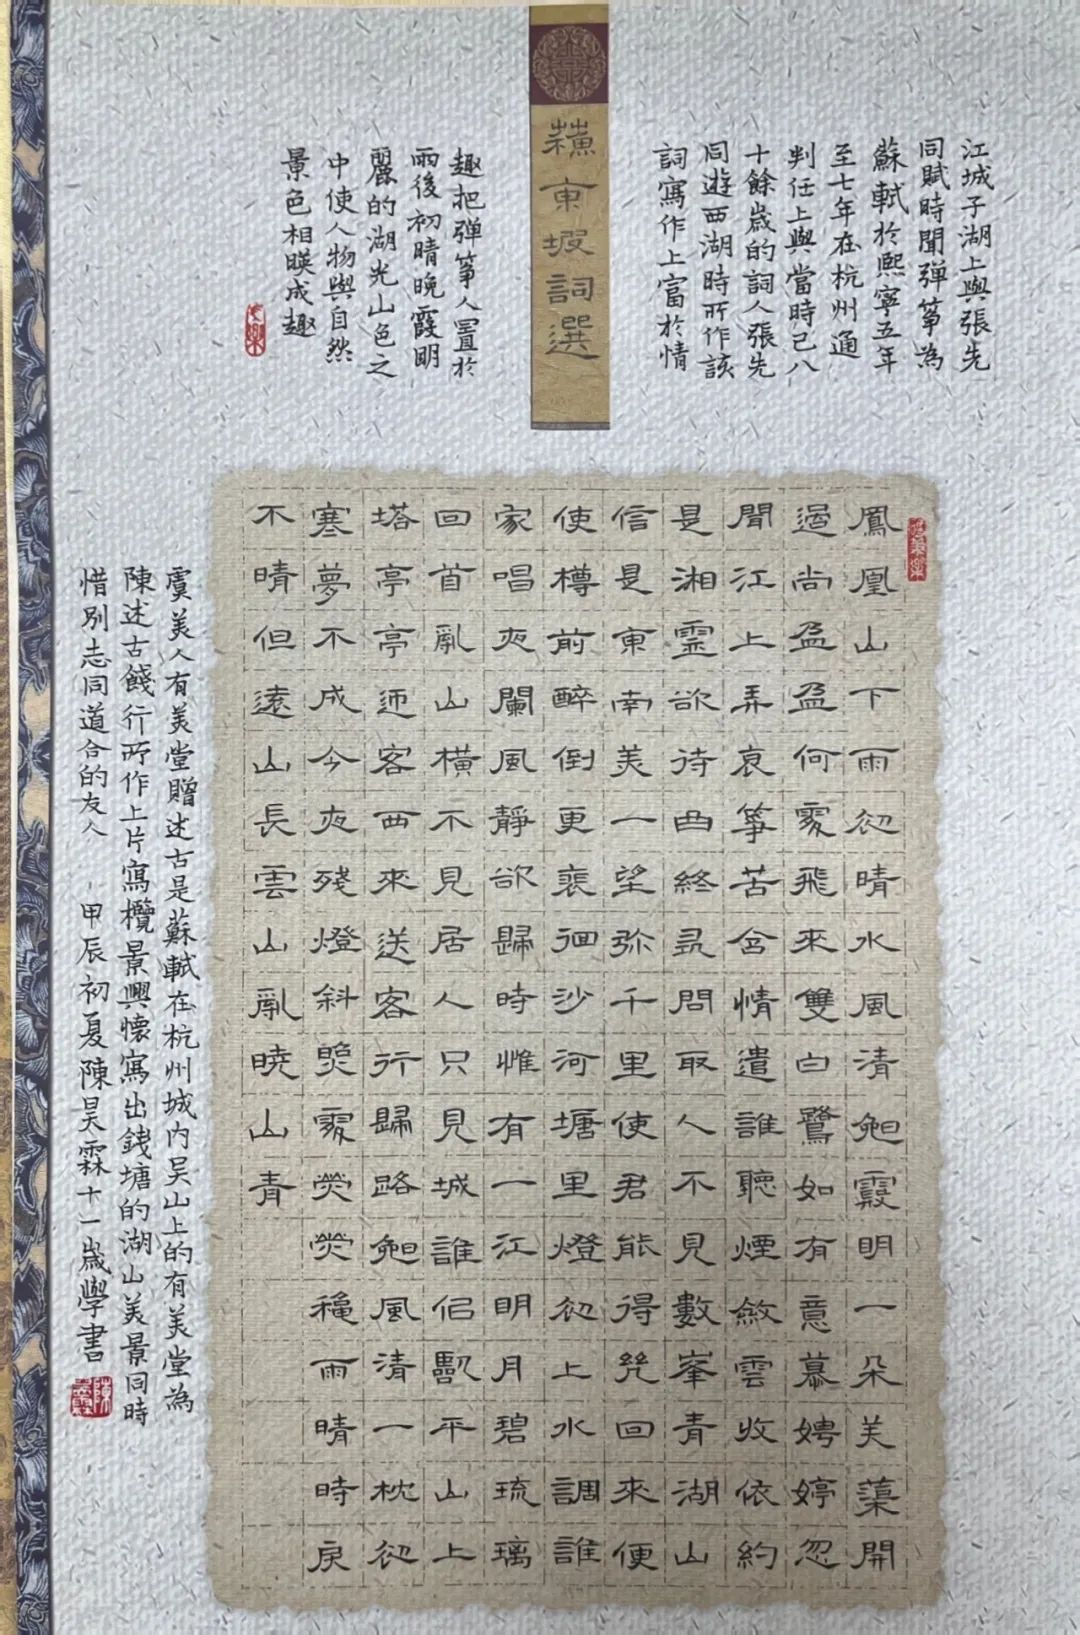 蘓東坡詞選
江城子湖上與張先
同賦時聞彈箏為
蘇軾於熙寧五年
至七年在杭州通
判任上與當時已八
十餘歲的詞人張先
同遊西湖時所作該
詞寫作上富於情
趣把彈箏人置於
雨後初晴晚霞明
麗的湖光山色之
中使人物與自然
景色相暎成趣
鳳凰山下雨初晴水風清晚霞明一朵芙蕖開
過尚盈盈何處飛來雙白鷺如有意慕娉婷忽
聞江上弄哀箏苦含情遣誰聽煙斂雲收依約
是湘靈欲待曲終尋問取人不見數峯青湖山
信是東南美一望弥千里使君能得幾回來便
使樽前醉倒更裴徊沙河塘里燈初上水調誰
家唱夜闌風靜欲歸時惟有一江明月碧琉璃
回首亂山橫不見居人只見城誰似臨平山上
塔亭亭迎客西來送客行歸路晚風清一枕初
寒夢不成今夜殘燈斜照處熒熒秋雨晴時淚
不晴但遠山長雲山亂曉山青
虞美人有美堂贈述古是蘇軾在杭州城内吳山上的有美堂為
陳述古餞行所作上片寫欖景興懷寫出錢塘的湖山美景同時
惜別志同道合的友人 甲辰初夏陳昊霖十一歲學書